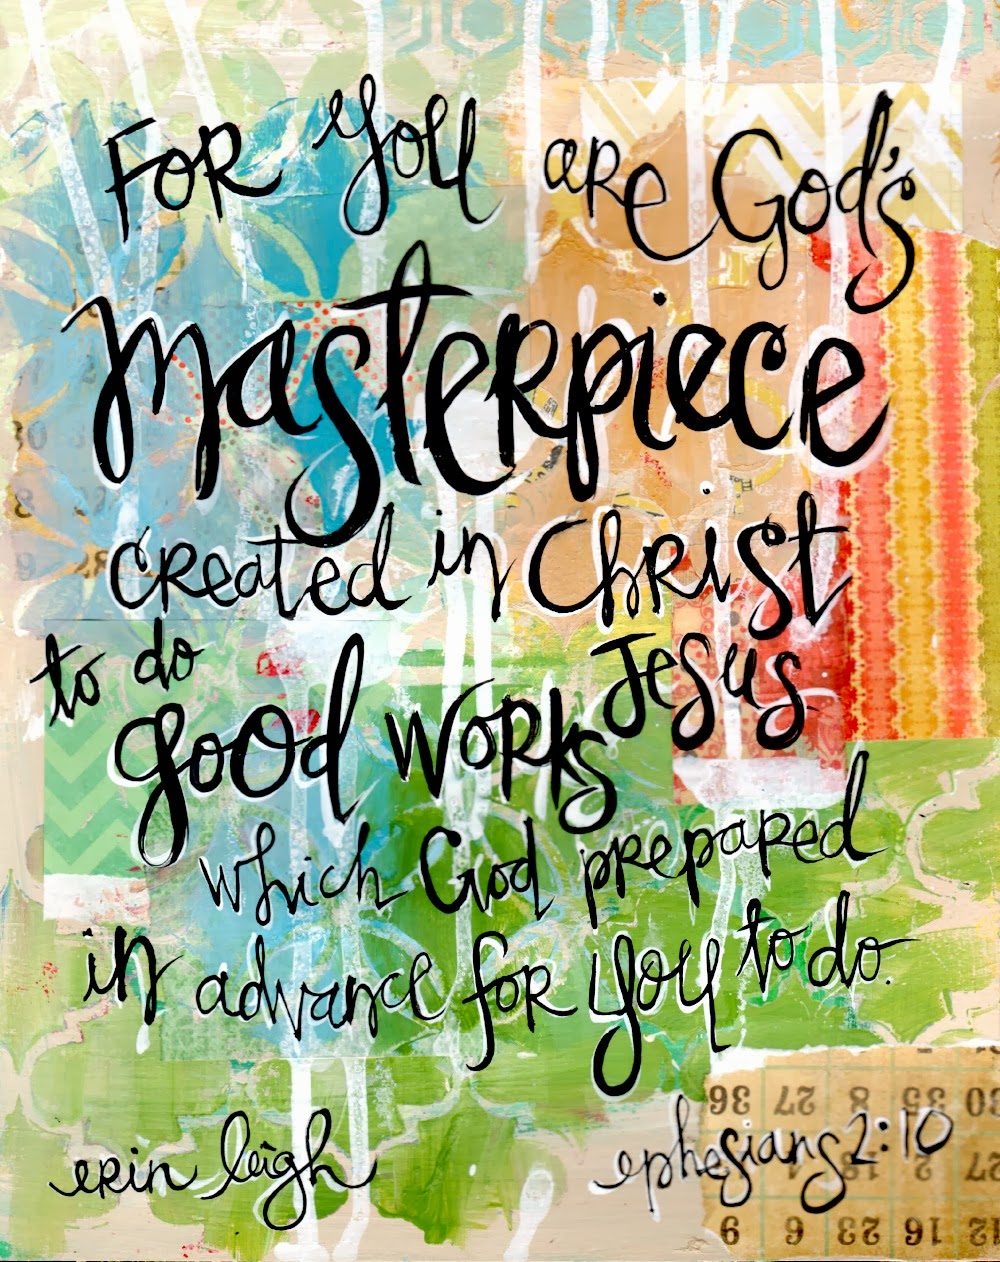 For you are God's
Masterpiece
created in Christ
Jesus
to do
good works
which God prepared
in advance for you to do.
erin leigh
ephesians 2:10
36 27 8 35 30
27 2 18 14
9 6 23 16 12